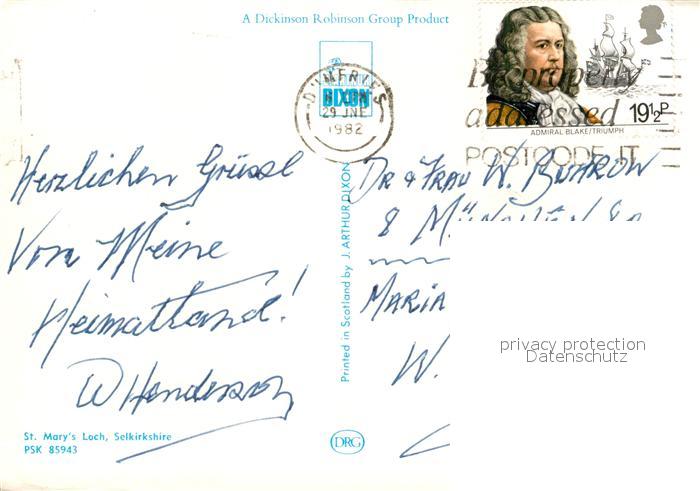 A Dickinson Robinson Group Product
DUMFRIES
29 JNE
1982
DIXON
Be properly
addressed
POSTCODE IT
19½P
ADMIRAL BLAKE/TRIUMPH
Herzlichen Grüssl
Von Meine
Heimatland!
W Henderson
St. Mary's Loch, Selkirkshire
PSK 85943
Printed in Scotland by J. ARTHUR DIXON
DRG
DR & FRAU W. BUHROW
8
MARIA
W.
privacy protection
Datenschutz